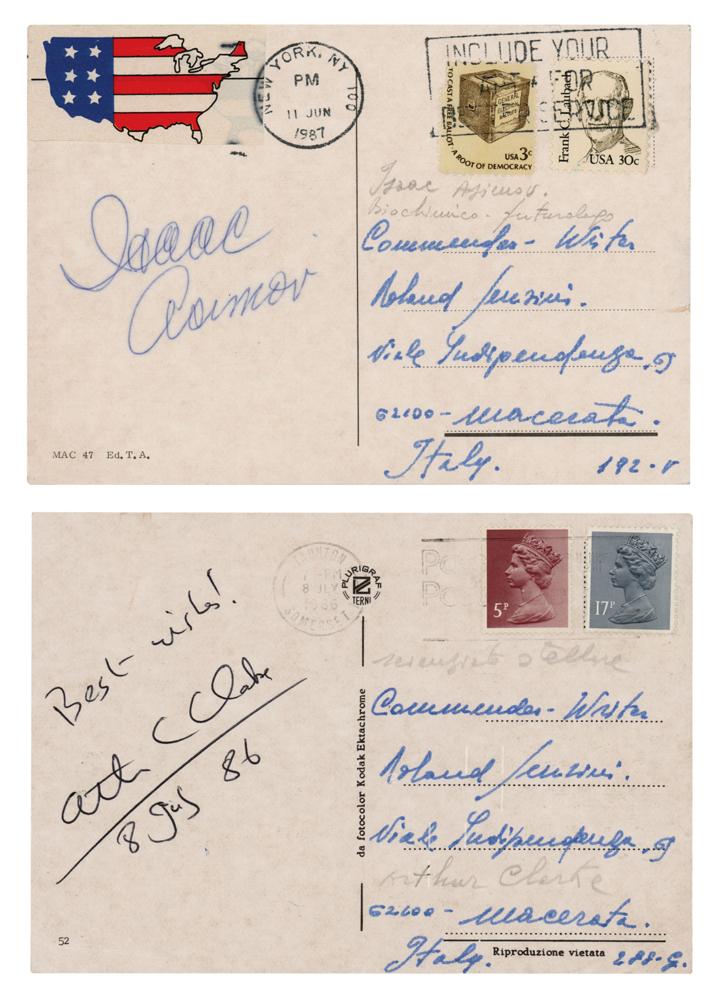 NEW YORK, NY 100
PM
11 JUN
1987
INCLUDE YOUR
FOR
SERVICE
TO CAST A FREE BALLOT · A ROOT OF DEMOCRACY
GENERAL ELECTION
USA 3c
Frank C. Laubach
USA 30c
Isaac Asimov
Isaac Asimov.
Biochimico - futurologo
Commender - Writer
Roland Senzini.
Viale Indipendenza, 69
62100 - Macerata.
Italy.
192-V
MAC 47 Ed. T. A.
TAUNTON
8 JLY
1986
SOMERSET
PLURIGRAF
TERNI
5P
17P
Best wishes!
Arthur C Clarke
8 July 86
scienziato stellare
Commender - Writer
Roland Senzini.
Viale Indipendenza, 69
Arthur Clarke
62100 - Macerata.
Italy.
288-G.
da fotocolor Kodak Ektachrome
52
Riproduzione vietata